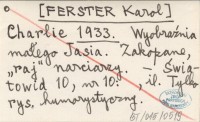 [FERSTER Karol]
Charlie 1933. Wyobraźnia
małego Jasia. Zakopane,
"raj" narciarzy. Świa-
towid 10, nr 10: , il. Tylko
rys. humorystyczny.